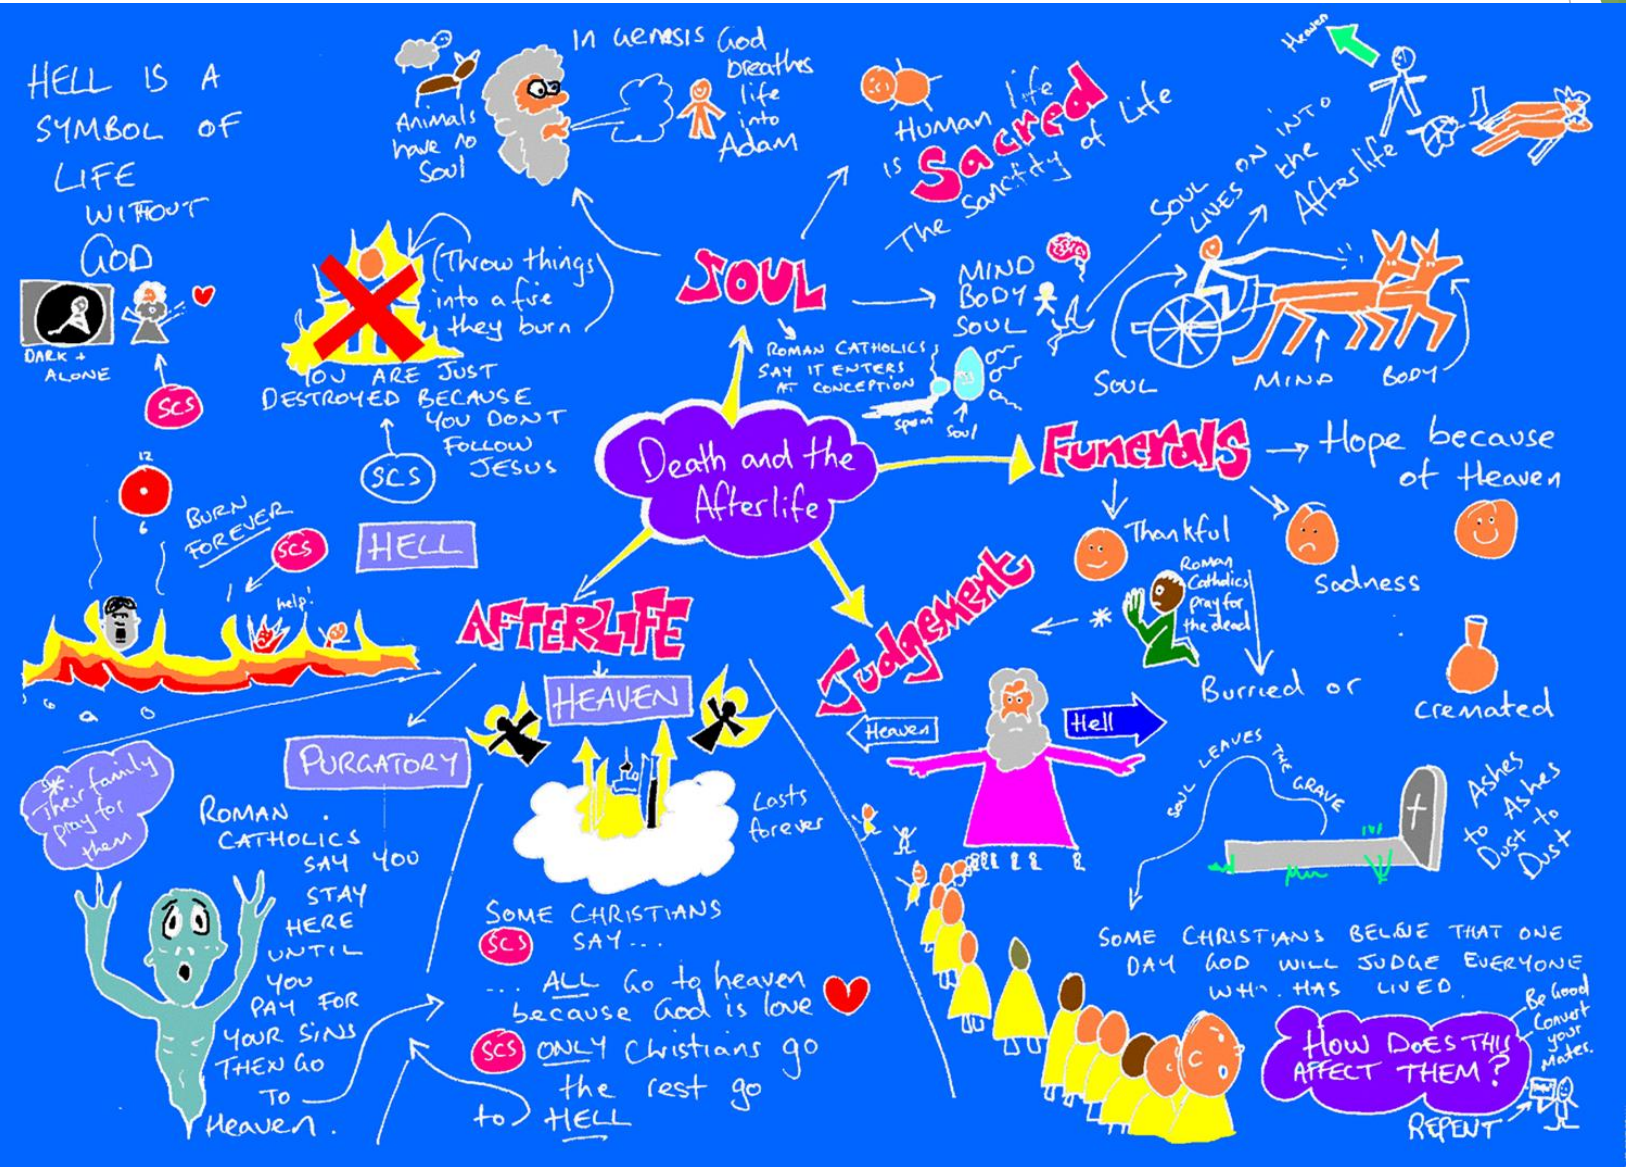 HELL IS A
SYMBOL OF
LIFE
WITHOUT
GOD
DARK +
ALONE
SCS
Animals
have no
Soul
In Genesis God
breathes
life
into
Adam
Human life
is Sacred
The Sanctity of Life
Heaven
SOUL
LIVES ON INTO
the
Afterlife
(Throw things
into a fire
they burn)
YOU ARE JUST
DESTROYED BECAUSE
YOU DON'T
FOLLOW
JESUS
SCS
SOUL
MIND
BODY
SOUL
ROMAN CATHOLICS
SAY IT ENTERS
AT CONCEPTION
sperm
Soul
SOUL
MIND
BODY
Death and the
Afterlife
Funerals
Hope because
of Heaven
Thankful
Sadness
Roman
Catholics
pray for
the dead
*
Burried or
cremated
12
6
BURN
FOREVER
SCS
HELL
help!
AFTERLIFE
HEAVEN
Lasts
forever
PURGATORY
*
Their family
pray for
them
ROMAN
CATHOLICS
SAY YOU
STAY
HERE
UNTIL
YOU
PAY FOR
YOUR SINS
THEN GO
TO
Heaven.
SOME CHRISTIANS
SCS SAY...
... ALL Go to heaven
because God is love
SCS ONLY Christians go
the rest go
to HELL
Judgement
Heaven
Hell
SOUL LEAVES THE GRAVE
Ashes
to Ashes
Dust to
Dust
SOME CHRISTIANS BELIEVE THAT ONE
DAY GOD WILL JUDGE EVERYONE
WHO HAS LIVED.
HOW DOES THIS
AFFECT THEM?
Be Good
Convert
your
Mates.
REPENT